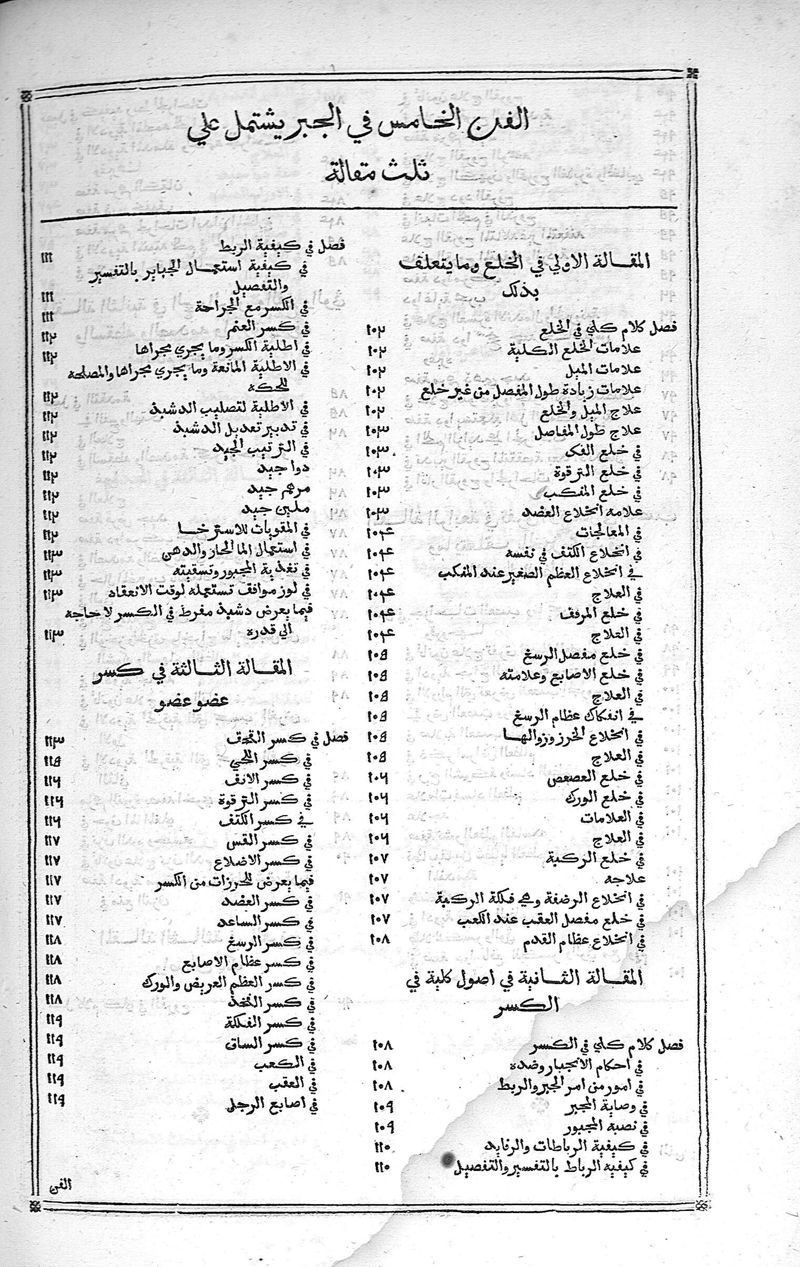 الفن الخامس في الجبر يشتمل علي
ثلث مقالة
المقالة الاولي في الخلع وما يتعلف
بذلك
فصل كلام كلي في الخلع ١٠٢
علامات الخلع الكلية ١٠٢
علامات الميل ١٠٢
علامات زيادة طول المفصل من غير خلع ١٠٢
علاج الميل والخلع ١٠٢
علاج طول المفاصل ١٠٣
في خلع الفك ١٠٣
في خلع الترقوة ١٠٣
في خلع المنكب ١٠٣
علامه انخلاع العضد ١٠٣
في المعالجات ١٠٤
في انخلاع الكتف في نفسه ١٠٤
في انخلاع العظم الصغير عند المنكب ١٠٤
في العلاج ١٠٤
في خلع المرفف ١٠٤
في العلاج ١٠٤
في خلع مفصل الرسغ ١٠٥
في خلع الاصابع وعلامته ١٠٥
في العلاج ١٠٥
في انفكاك عظام الرسغ ١٠٥
في انخلاع الخرز وزوالها ١٠٥
في العلاج ١٠٥
في خلع العصعص ١٠٦
في خلع الورك ١٠٦
في العلامات ١٠٦
في العلاج ١٠٦
في خلع الركبة ١٠٧
علاجه ١٠٧
في انخلاع الرضفة وهي فلكة الركبة ١٠٧
في خلع مفصل العقب عند الكعب ١٠٧
في انخلاع عظام القدم ١٠٨
المقالة الثانية في اصول كلية في
الكسر
فصل كلام كلي في الكسر ١٠٨
في احكام الانجبار وضده ١٠٨
في امور من امر الجبر والربط ١٠٨
في وصاية المجبر ١٠٩
في نصبة المجبور ١٠٩
في كيفية الرباطات والرفايد ١١٠
في كيفيه الرباط بالتفسير والتفصيل ١١٠
فصل في كيفية الربط ١١١
في كيفية استعمال الجباير بالتفسير
والتفصيل ١١١
في الكسر مع الجراحة ١١١
في كسر العثم ١١٢
في اطلية الكسر وما يجري مجراها ١١٢
في الاطلية المانعة وما يجري مجراها والمصلحه
للحكه ١١٢
في الاطلية لتصليب الدشبد ١١٢
في تدبير تعديل الدشبد ١١٢
في الترتيب الجيد ١١٢
دوا جيد ١١٢
مرهم جيد ١١٢
ملين جيد ١١٢
في المقويات للاسترخا ١١٢
في استعمال الما الحار والدهن ١١٣
في تغذية المجبور وتسقيته ١١٣
في لوز موافف تستعمله لوقت الانعقاد ١١٣
فيما يعرض دشبد مفرط في الكسر لا حاجه
الي قدره ١١٣
المقالة الثالثة في كسر
عضو عضو
فصل في كسر القحف ١١٣
في كسر اللحي ١١٥
في كسر الانف ١١٦
في كسر الترقوة ١١٦
في كسر الكتف ١١٦
في كسر القس ١١٧
في كسر الاضلاع ١١٧
فيما يعرض للخرزات من الكسر ١١٧
في كسر العضد ١١٧
في كسر الساعد ١١٧
في كسر الرسغ ١١٨
في كسر عظام الاصابع ١١٨
في كسر العظم العريض والورك ١١٨
في كسر الفخذ ١١٨
في كسر الفلكة ١١٩
في كسر الساق ١١٩
في الكعب ١١٩
في العقب ١١٩
في اصابع الرجل ١١٩
الفن